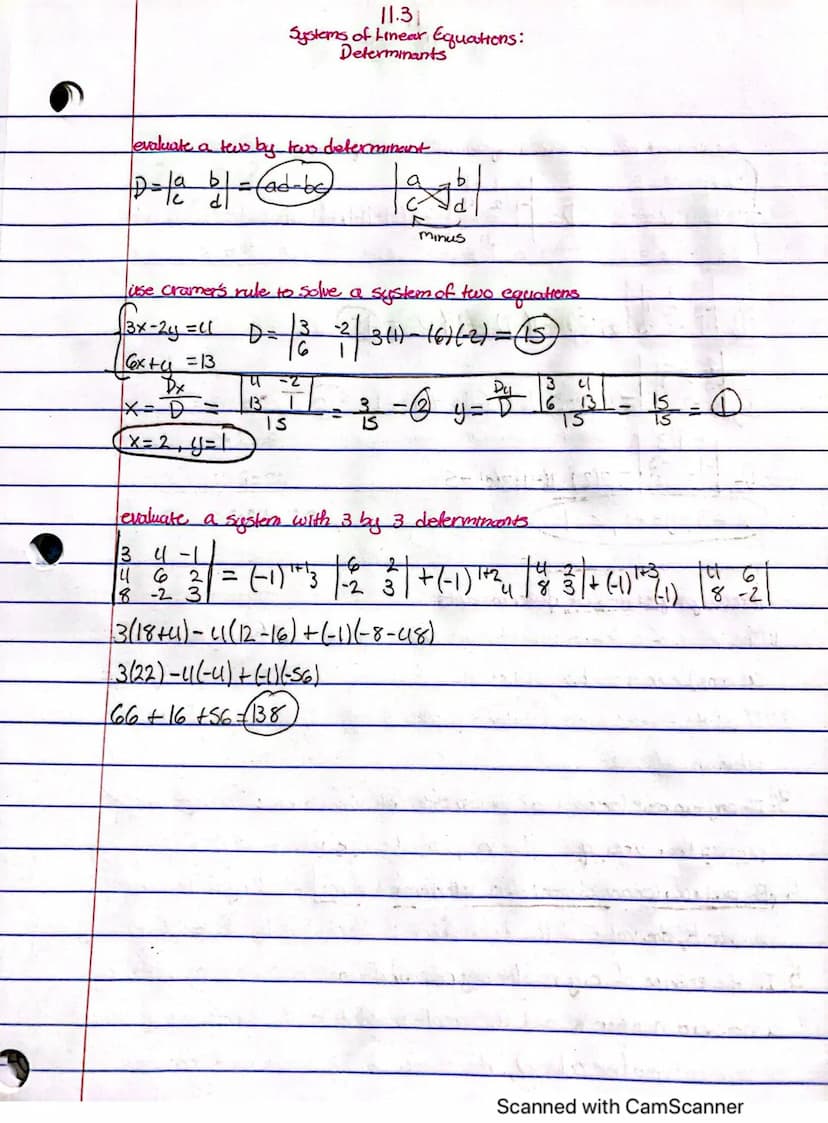 11.3
Systems of Linear Equations:
Determinants
evaluate a two by two determinant
D = |a b| = ad-bc |a b|
|c d| |c d|
minus
use cramer's rule to solve a system of two equations
{3x-2y = 4 D = |3 -2| 3(1) - (6)(-2) = 15
{6x+y = 13 |6 1|
x = Dx/D = |4 -2| / 15 = 3/15 = 2 y = Dy/D |3 4| / 15 = 15/15 = 1
|13 1| |6 13|
x = 2, y = 1
evaluate a system with 3 by 3 determinants
|3 4 -1|
|4 6 2| = (-1)^1+1 3 |6 2| + (-1)^1+2 4 |4 2| + (-1)^1+3 (-1) |4 6|
|8 -2 3| |-2 3| |8 3| |8 -2|
3(18+4) - 4(12-16) + (-1)(-8-48)
3(22) - 4(-4) + (-1)(-56)
66 + 16 + 56 = 138
Scanned with CamScanner